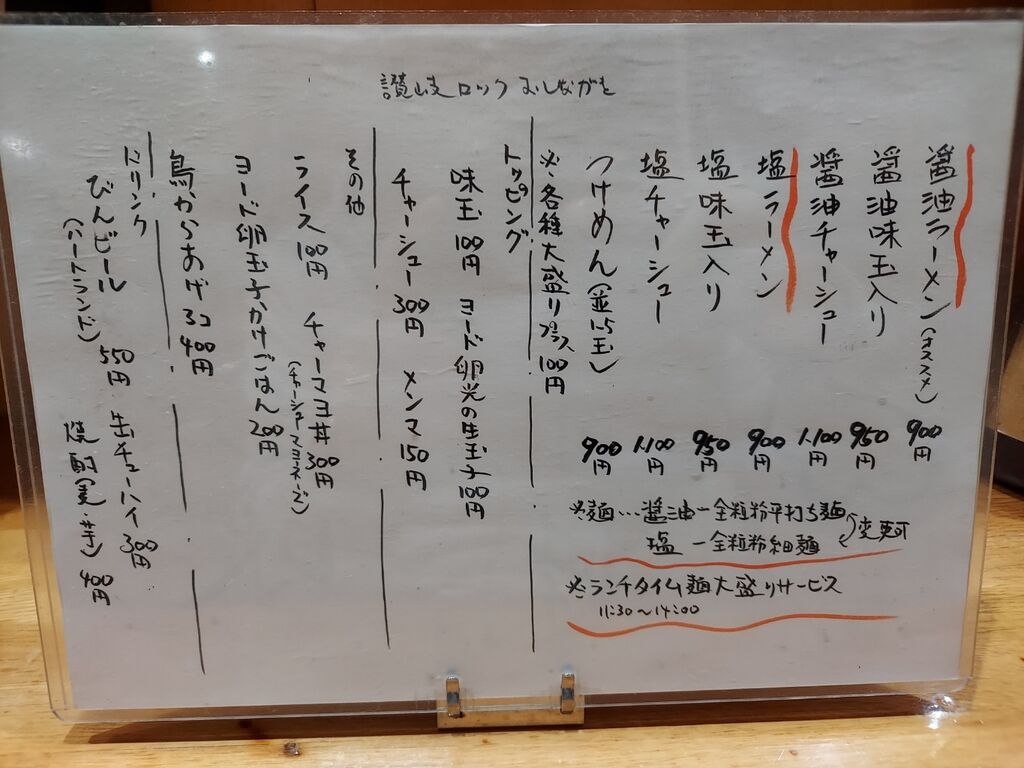 讃岐ロック おしながき
醤油ラーメン(オススメ) 900円
醤油味玉入り 950円
醤油チャーシュー 1,100円
塩ラーメン 900円
塩味玉入り 950円
塩チャーシュー 1,100円
つけめん 900円
※各種大盛りプラス100円
※麺…醤油ー全粒粉平打ち麺
塩ー全粒粉細麺
変更可
※ランチタイム麺大盛りサービス
11:30〜14:00
トッピング
味玉100円 ヨード卵光の生玉子100円
チャーシュー300円 メンマ150円
その他
ライス100円 チャーマヨ丼300円
(チャーシューマヨネーズ)
ヨード卵玉子かけごはん200円
鳥からあげ3コ400円
ドリンク
びんビール 550円 生チューハイ300円
(ハートランド) 焼酎(麦・芋)400円